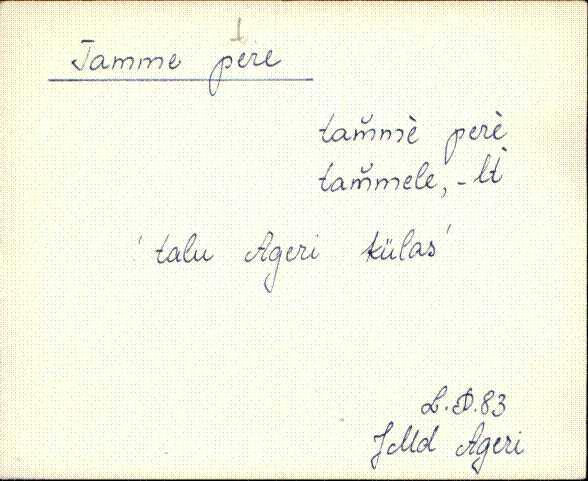 1
Tamme pere
tam̆mè perè
tam̆mele, -lt̀
'talu Ageri külas'
L.P.83
JMd Ageri